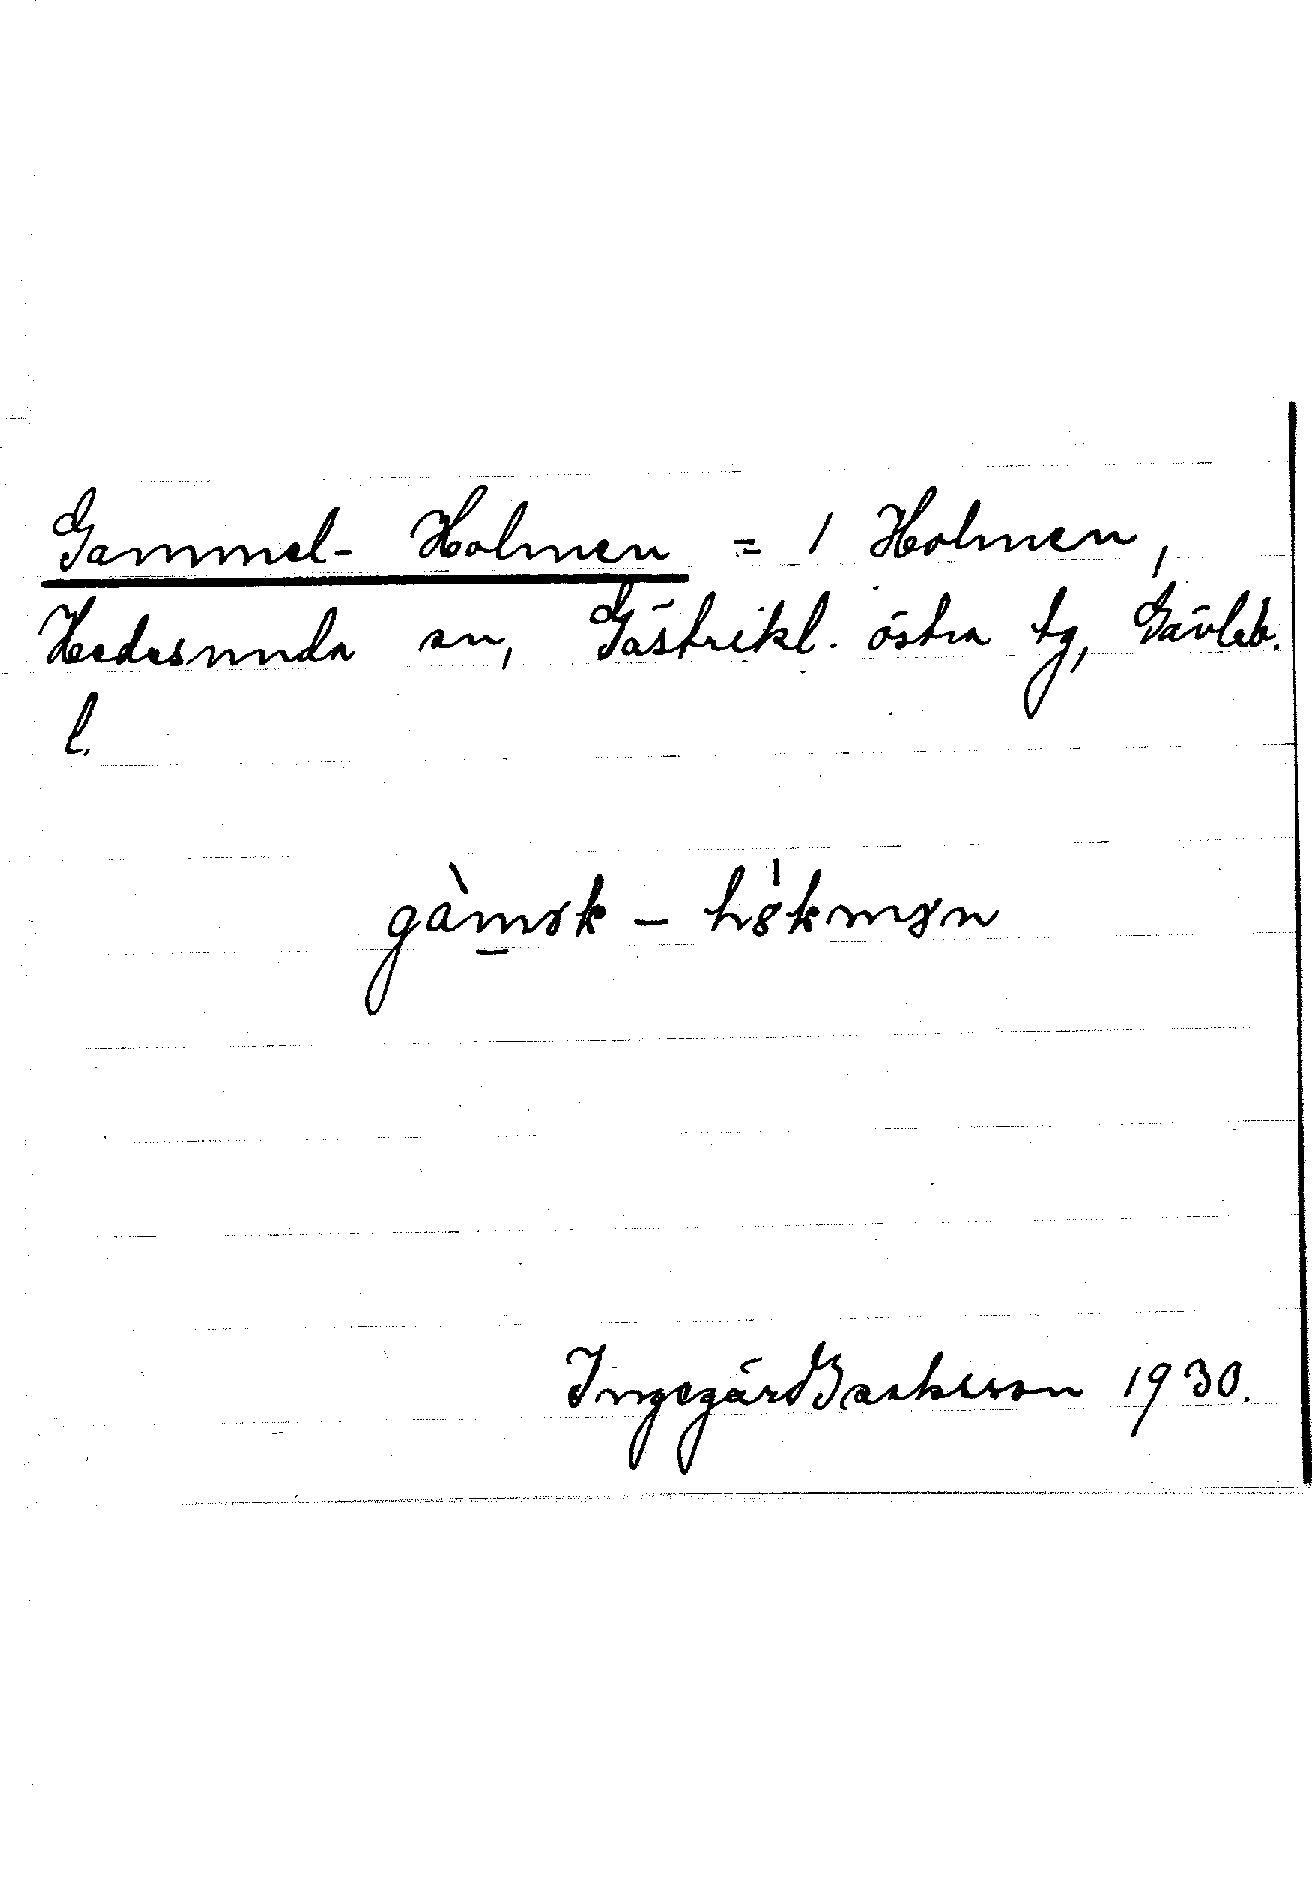 Gammel-Holmen = 1 Holmen,
Hedesunda sn, Gästrikl. östra tg, Gävleb.
l.
Ingegärd 1930.